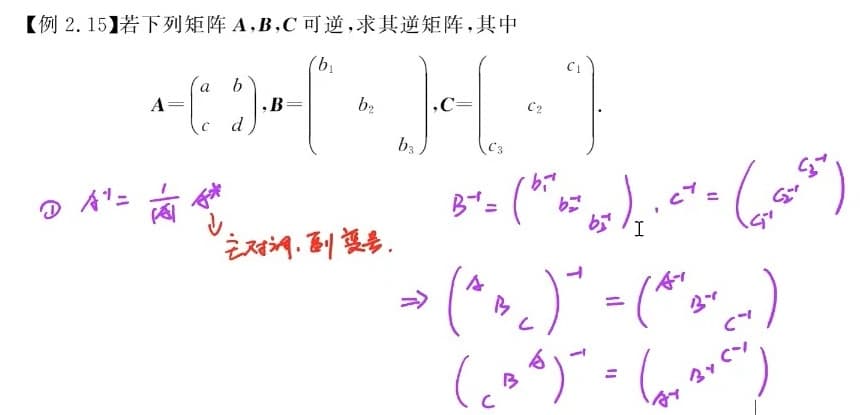 【例 2.15】若下列矩阵 A,B,C 可逆,求其逆矩阵,其中
A=(a b
c d), B=(b₁
b₂
b₃), C=(c₁
c₂
c₃).
① A⁻¹= 1/|A| A*
↓
主对调,副变号.
B⁻¹=(b₁⁻¹ b₂⁻¹ b₃⁻¹), C⁻¹=(c₃⁻¹ c₂⁻¹ c₁⁻¹)
⇒ (A B C)⁻¹ = (A⁻¹ B⁻¹ C⁻¹)
(A B C)⁻¹ = (C⁻¹ B⁻¹ A⁻¹)